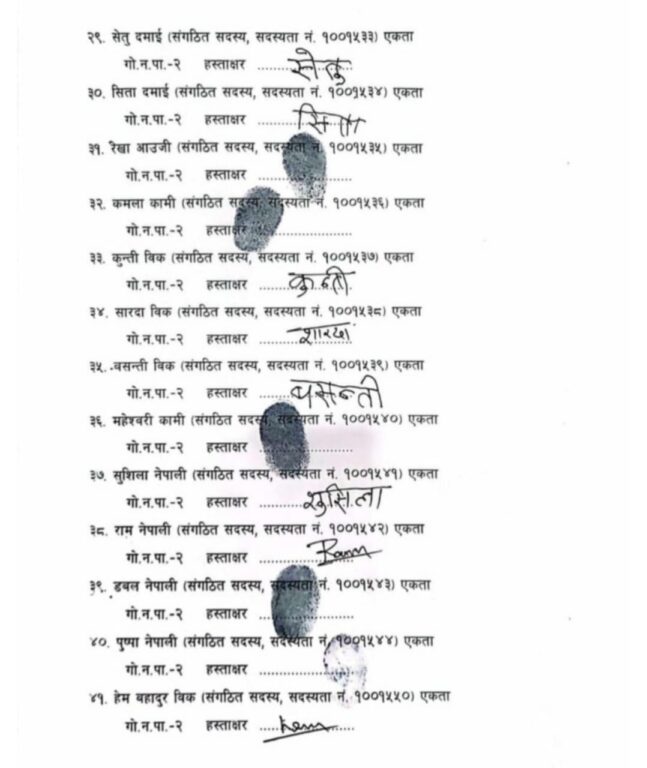 २९. सेतु दमाई (संगठित सदस्य, सदस्यता नं. १००१५३३) एकता
गो.न.पा.-२ हस्ताक्षर ........सेतु
३०. सिता दमाई (संगठित सदस्य, सदस्यता नं. १००१५३४) एकता
गो.न.पा.-२ हस्ताक्षर ........सिता
३१. रेखा आउजी (संगठित सदस्य, सदस्यता नं. १००१५३५) एकता
गो.न.पा.-२ हस्ताक्षर ......................
३२. कमला कामी (संगठित सदस्य, सदस्यता नं. १००१५३६) एकता
गो.न.पा.-२ हस्ताक्षर ......................
३३. कुन्ती विक (संगठित सदस्य, सदस्यता नं. १००१५३७) एकता
गो.न.पा.-२ हस्ताक्षर ........कुन्ती
३४. सारदा विक (संगठित सदस्य, सदस्यता नं. १००१५३८) एकता
गो.न.पा.-२ हस्ताक्षर .........शारदा
३५. बसन्ती विक (संगठित सदस्य, सदस्यता नं. १००१५३९) एकता
गो.न.पा.-२ हस्ताक्षर ........वसन्ती
३६. महेश्वरी कामी (संगठित सदस्य, सदस्यता नं. १००१५४०) एकता
गो.न.पा.-२ हस्ताक्षर ......................
३७. सुशिला नेपाली (संगठित सदस्य, सदस्यता नं. १००१५४१) एकता
गो.न.पा.-२ हस्ताक्षर ..........सुसिला
३८. राम नेपाली (संगठित सदस्य, सदस्यता नं. १००१५४२) एकता
गो.न.पा.-२ हस्ताक्षर ............Ram
३९. डबल नेपाली (संगठित सदस्य, सदस्यता नं. १००१५४३) एकता
गो.न.पा.-२ हस्ताक्षर ......................
४०. पुष्पा नेपाली (संगठित सदस्य, सदस्यता नं. १००१५४४) एकता
गो.न.पा.-२ हस्ताक्षर ......................
४१. हेम बहादुर विक (संगठित सदस्य, सदस्यता नं. १००१५५०) एकता
गो.न.पा.-२ हस्ताक्षर